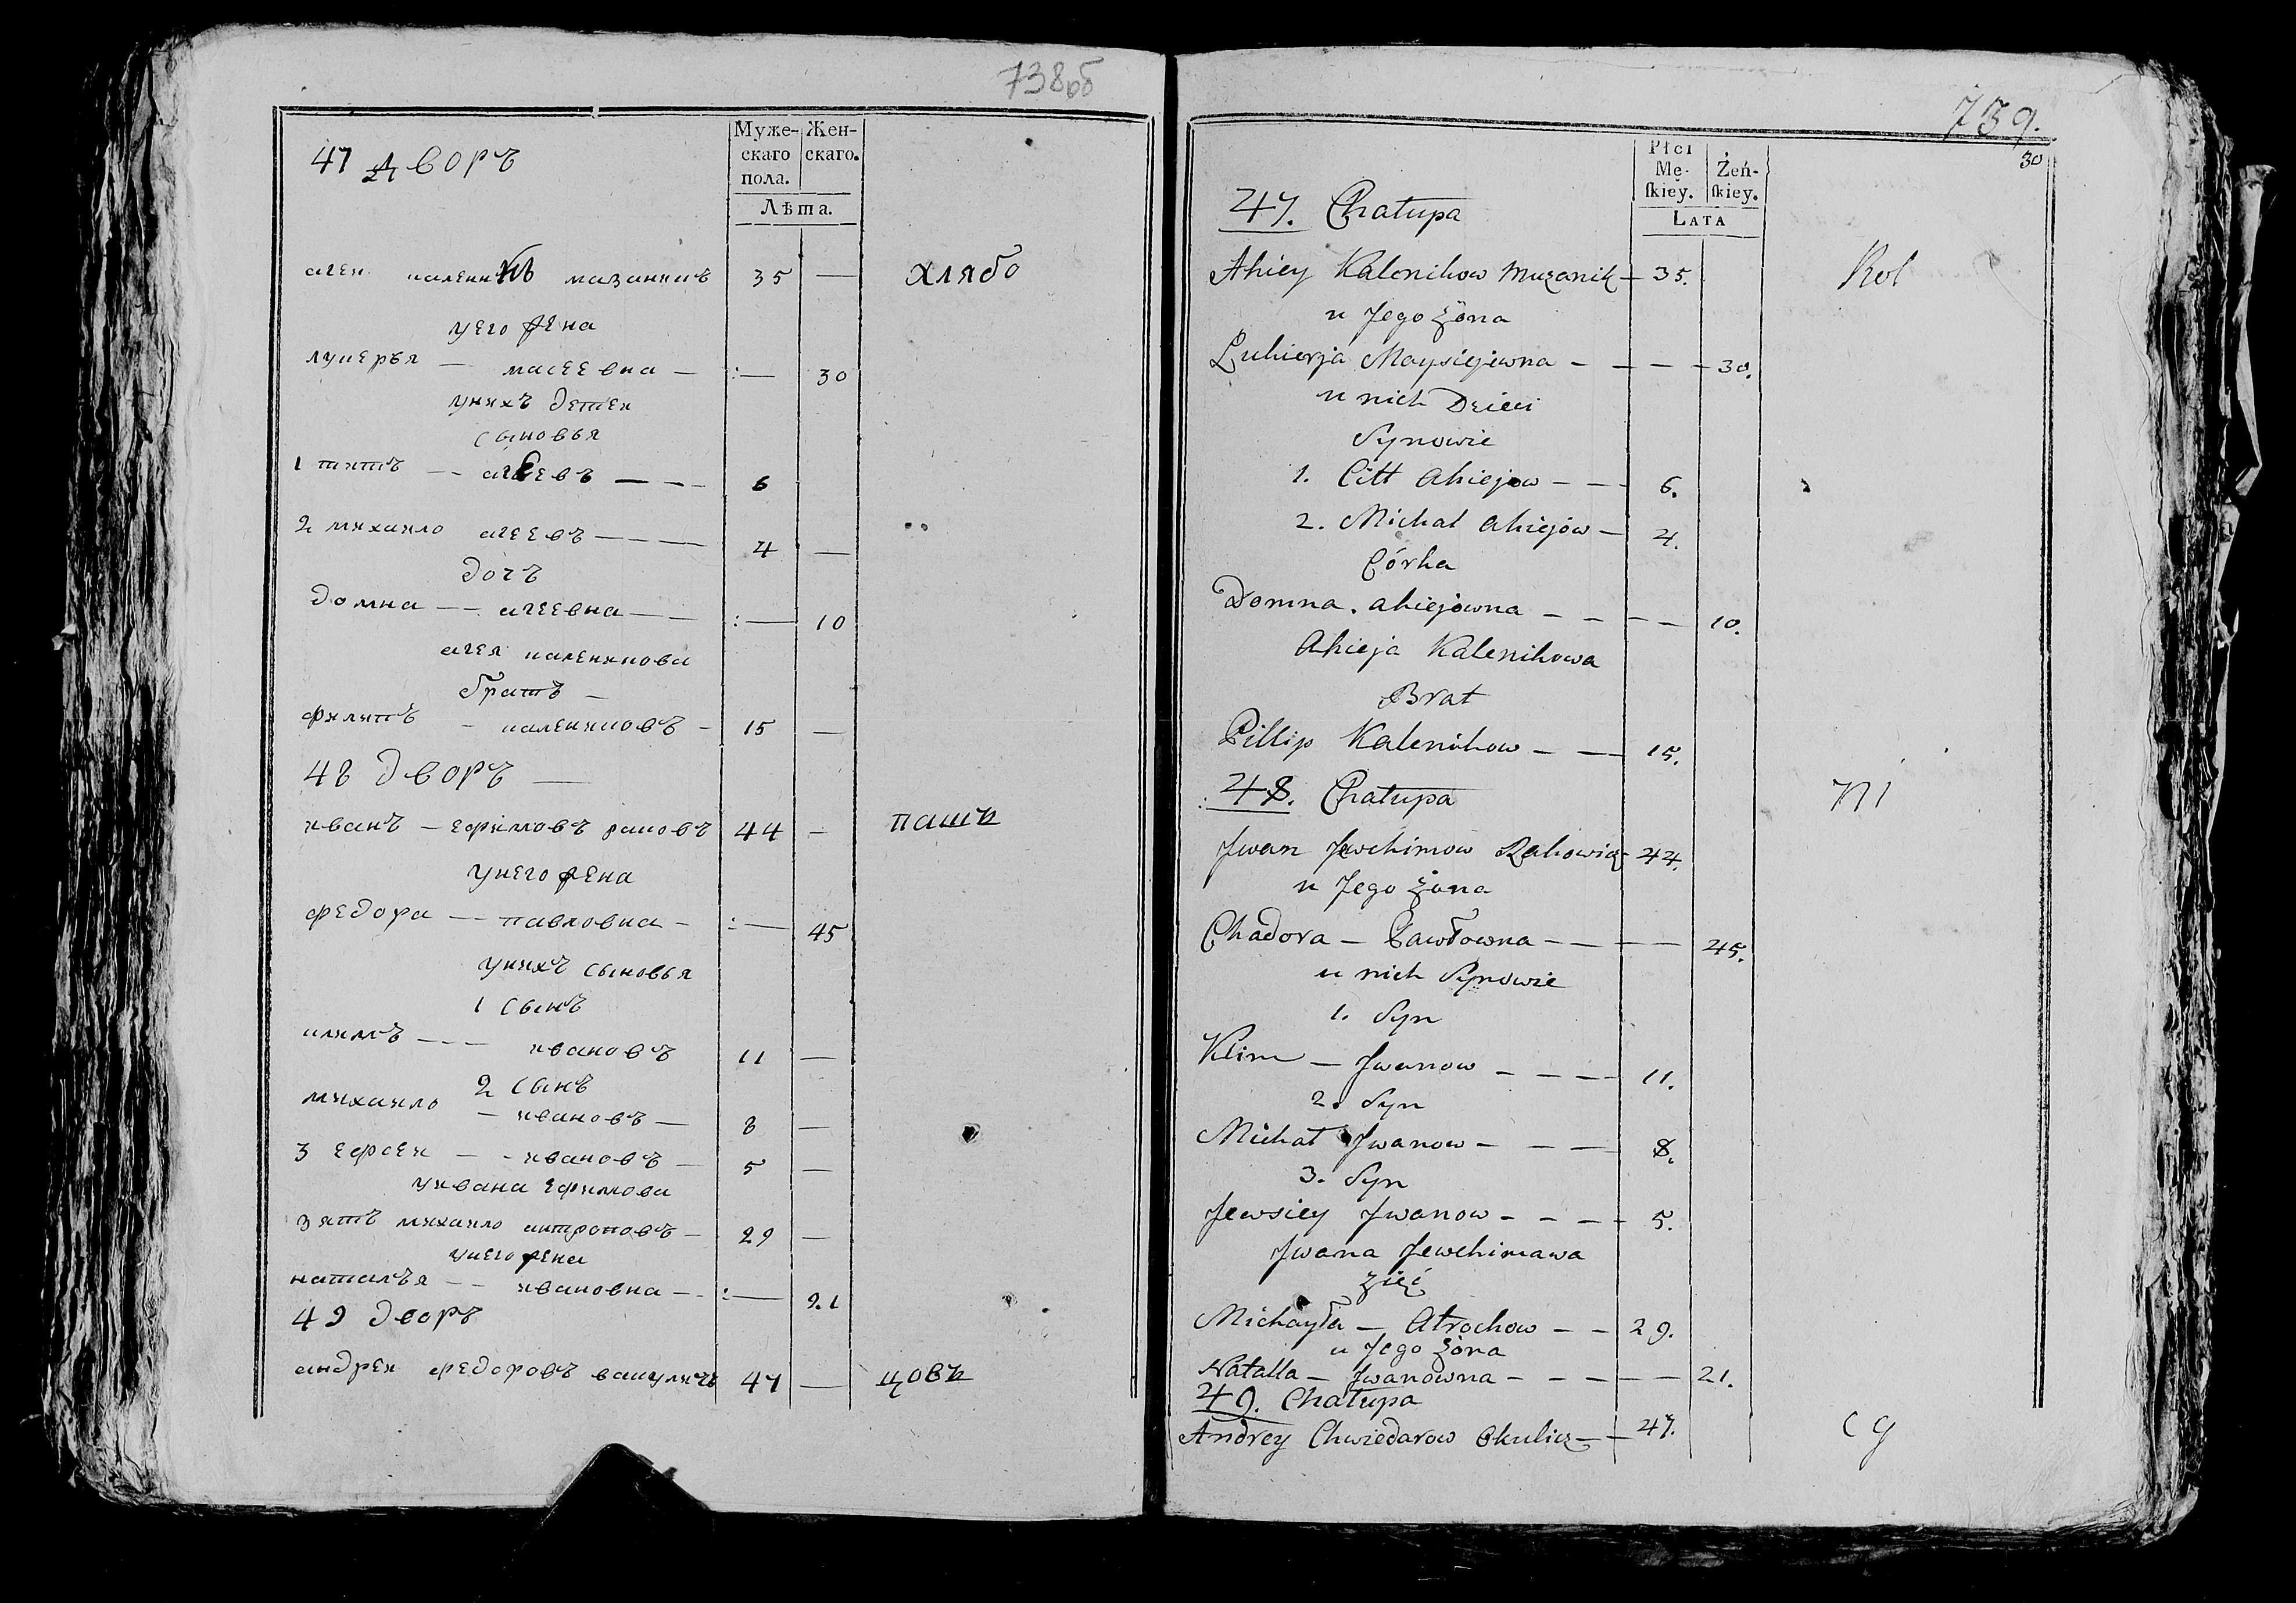 738об
Муже-
скаго
пола.
Жен-
скаго.
Лѣта.
47 дворъ
агеи каленикъ мазаникъ 35 — хлябо
унего жена
лукеръя — масеевна — :— 30
унихъ детеи
сыновья
1 титъ — агеевъ — — — 6
2 михаило агеевъ — — — — 4 —
дочъ
домна — — агеевна — — :— 10
агея каленикова
братъ —
филипъ — калениковъ — 15 —
48 дворъ —
иванъ — ефимовъ раковъ 44 — пашк
унего жена
федора — павловна — :— 45
унихъ сыновья
1 сынъ
климъ — — — ивановъ 11 —
2 сынъ
михаило — ивановъ — 8 —
3 евсеи — — ивановъ — 5 —
уивана ефимова
зятъ михаило антроповъ — 29 —
унего жена
наталъя — — ивановна — — :— 21
49 дворъ
андреи федоровъ вакуличъ 47 — цовк
739.
30
Płci
Mę-
ſkiey.
Żeń-
ſkiey.
LATA
47. Chałupa
Ahiey Kalenikow Muzanik — 35. Rol
u Jego żona
Łukierja Maysiejewna — — — — 30.
u nich Dzieci
Synowie
1. Citt Ahiejow — — — 6.
2. Michał Ahiejów — 4.
Córka
Domna. Ahiejowna — — — — 10.
Ahieja Kalenikowa
Brat
Pillip Kalenikow — — 15.
48. Chałupa ni
Jwan Jewchimow Rakowicz 44.
u Jego żona
Chadora — Pawłowna — — — — 45.
u nich Synowie
1. Syn
Klim — Jwanow — — — — 11.
2. Syn
Michał Jwanow — — — 8.
3. Syn
Jewsiey Jwanow — — — — 5.
Jwana Jewchimawa
zięć
Michayła — Atrochow — — 29.
u Jego żona
Natalla — Jwanowna — — — — — 21.
49. Chałupa
Andrey Chwiedarow Okulicz — — 47. cy